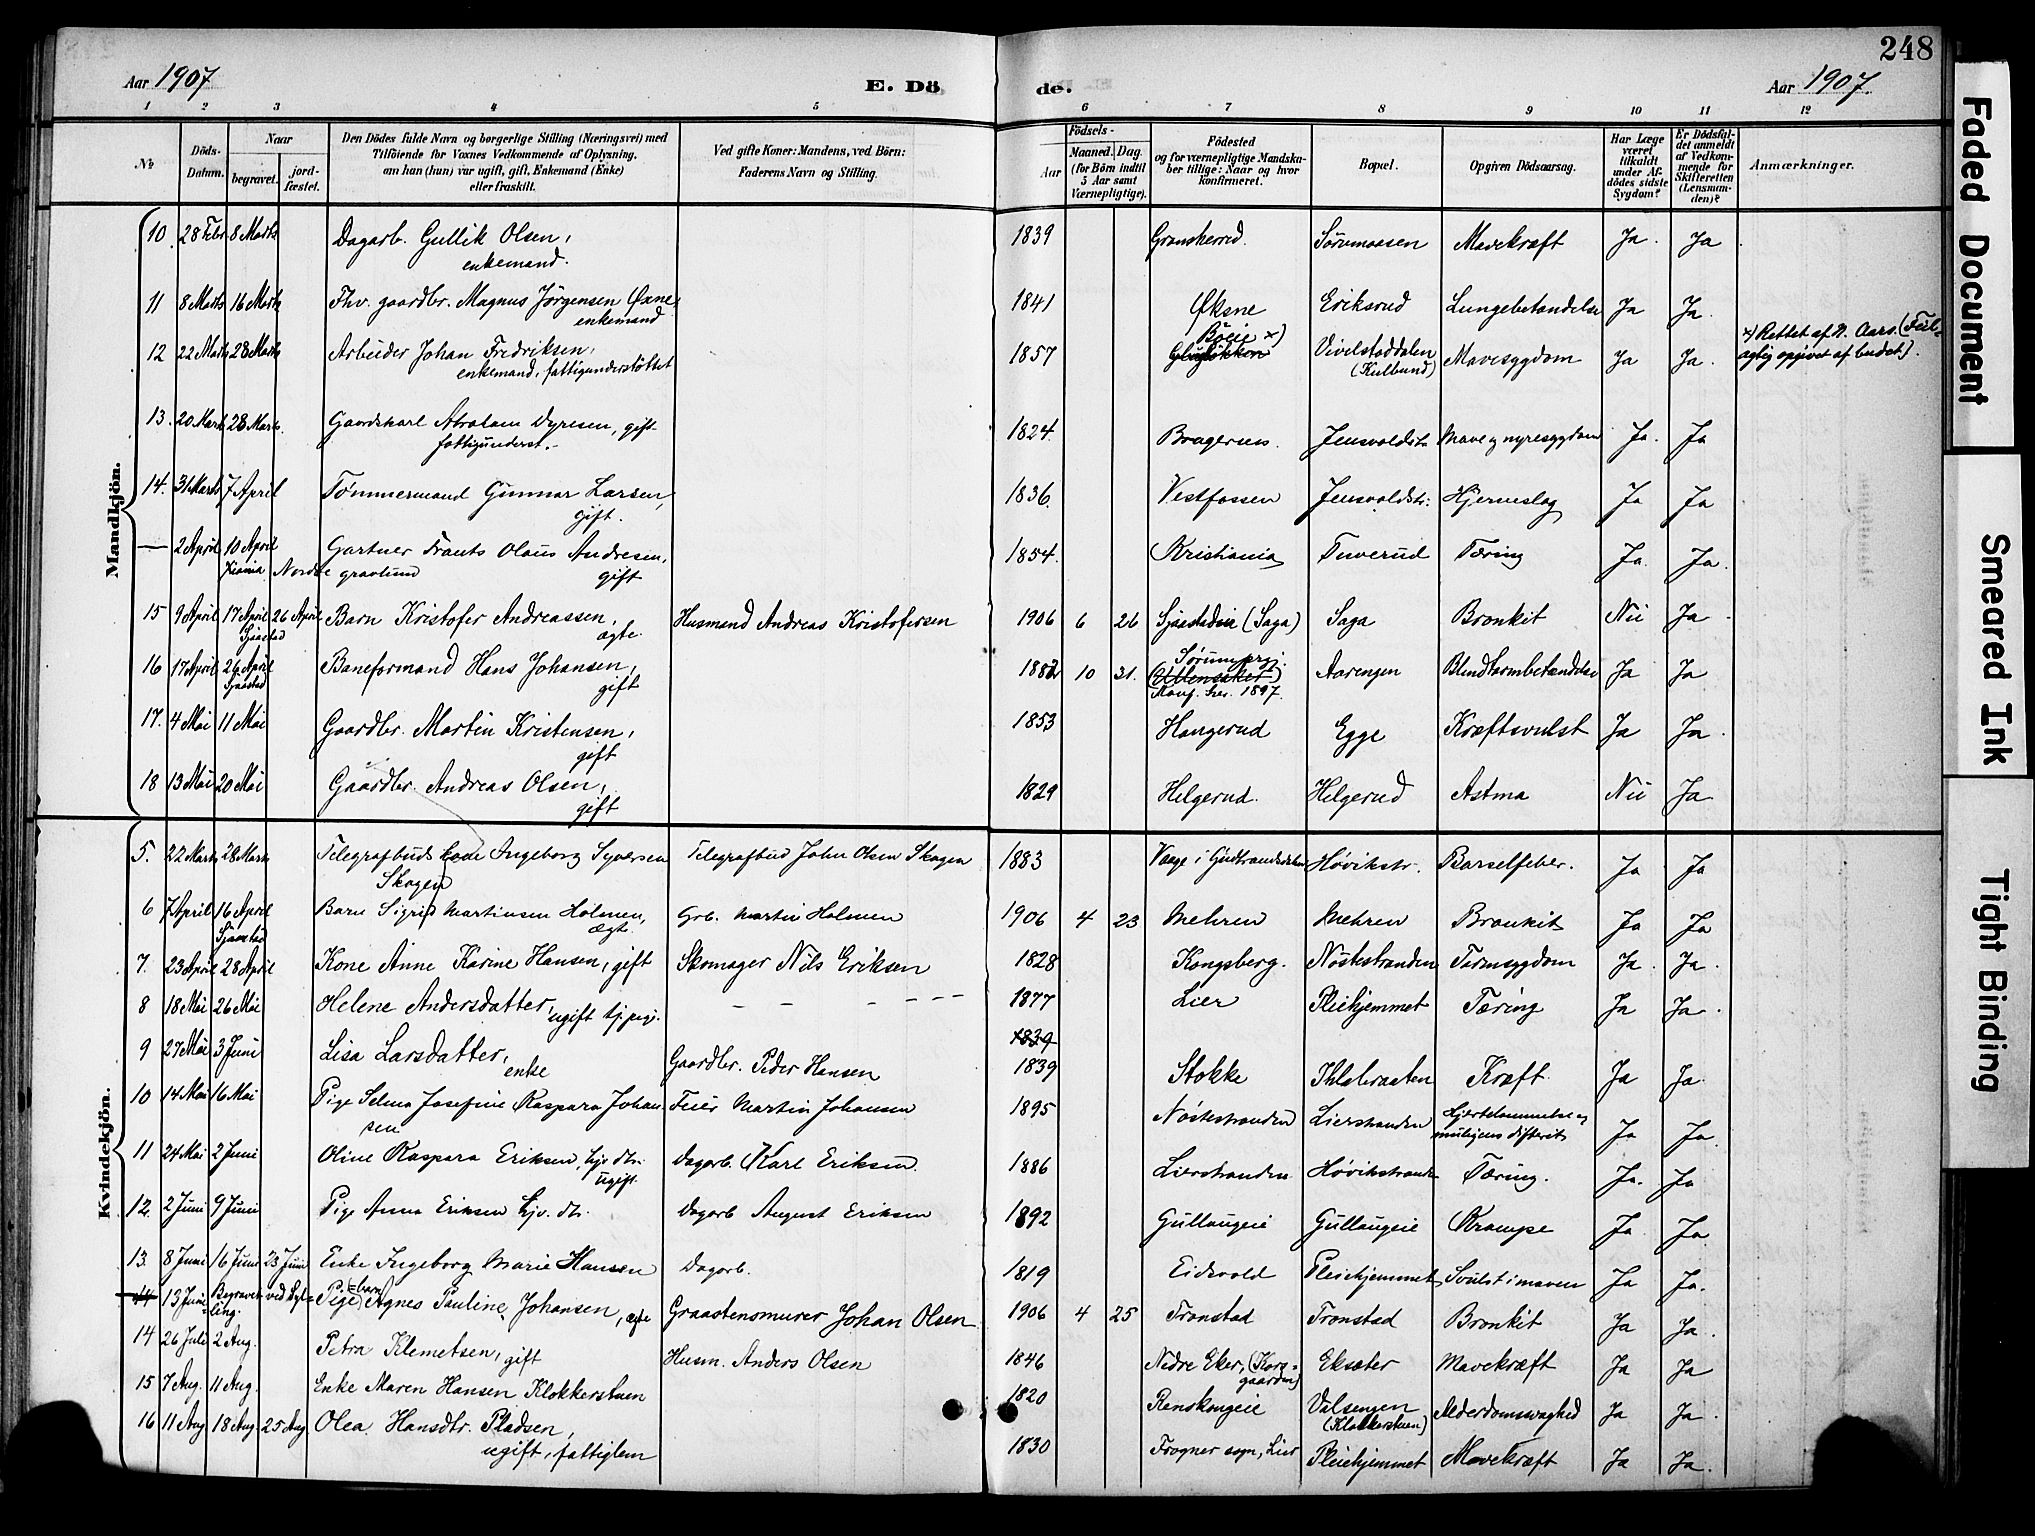 248
Aar 1907
E. Dö
de.
Aar 1907.
1 2 3 4 5 6 7 8 9 10 11 12
No
Döds-Datum.
Naar
begravet.
jord-fæstet.
Den Dödes fulde Navn og borgerlige Stilling (Næringsvei) med
Tilföiende for Voxnes Vedkommende af Oplysning,
om han (hun) var ugift, gift, Enkemand (Enke)
eller fraskilt.
Ved gifte Koner: Mandens, ved Börn:
Faderens Navn og Stilling.
Födsels-
Aar
Maaned. Dag.
(for Börn indtil
5 Aar samt
Værnepligtige).
Födested
og for værnepligtige Mandska-
ber tillige: Naar og hvor
konfirmeret.
Bopæl.
Opgiven Dödsaarsag.
Har Læge
været
tilkaldt
under Af-
dödes sidste
Sygdom?
Er Dödsfal-
det anmeldt
af Vedkom-
mende for
Skifteretten
(Lensman-
den)?
Anmærkninger.
Mandkjön.
10. 28 Febr 8 Marts Dagarb. Gullik Olsen, 1839 Gransherred. Sørumaasen Mavekræft Ja. Ja
enkemand.
11 8 Marts 16 Marts Fhv. gaardbr. Magnus Jørgensen Øxne 1841 Øksne Eriksrud Lungebetændelse Ja Ja.
enkemand
12 22 Marts 28 Marts Arbeider Johan Fredriksen, 1857 Böeie x) Vivelstaddalen Mavesygdom Ja Ja. x) Rettet af N. Aars. (Feil-
enkemand, fattigunderstöttet (Kulbund) agtig opgivet af budet).
13. 20 Mart 28 Mart. Gaardskarl Abraham Dyresen, gift 1824. Bragernes. Jensvoldstr Mave og nyresygdom Ja. Ja
fattigunderst.
14. 31 Marts 7 April Tømmermand Gunnar Larsen, 1836. Vestfossen Jensvoldstr. Hjerneslag Ja Ja
gift.
— 2 April 10 April Gartner Frants Olaus Andresen, 1854. Kristiania Tuverud Tæring Ja. Ja.
Xiania Nordre gravlund gift
15 9 April 17 April 26 April Barn Kristofer Andreassen, Husmand Andreas Kristofersen 1906 6 26 Sjaastadeie (Saga) Saga Bronkit Nei Ja.
Sjaastad ægte.
16 17 April 26 April Baneformand Hans Johansen, 1882 10 31. Sørum prgj. Aarengen Blindtarmbetændelse Ja Ja
Sjaastad gift (Ullensaker)
Konf. her. 1897.
17. 4 Mai 11 Mai Gaardbr. Martin Kristensen, 1853 Haugerud Egge Kræftsvulst Ja Ja.
gift
18 13 Mai 20 Mai Gaardbr. Andreas Olsen, 1829 Helgerud. Helgerud Astma Nei Ja
gift
Kvindekjön.
5. 22 Marts 28 Marts Telegrafbuds kone Ingeborg Syversen Telegrafbud John Olsen Skogen 1883 Vaage i Gudbrandsdalen Høvikstr. Barselfeber. Ja Ja
Skogen
6 7 April 16 April Barn Sigrid Martinsen Holmen, Grb. Martin Holmen 1906 4 23 Mehren Mehren Bronkit Ja Ja
Sjaastad ægte
7. 23 April 28 April Kone Anne Karine Hansen, gift Skomager Nils Eriksen 1828 Kongsberg. Nøstestranden Tarmsygdom Ja. Ja.
8 18 Mai 26 Mai Helene Andersdatter, ugift tj.pige. — — — — — — 1877 Lier Pleiehjemmet Tæring Ja Ja.
1839
9 27 Mai 3 Juni Lisa Larsdatter, enke Gaardbr. Peder Hansen 1839 Stokke Ihlebraaten Kræft. Ja Ja.
10 14 Mai 16 Mai Pige Selma Josefine Kaspara Johan- Feier Martin Johansen 1895 Nøstestranden Lierstranden Hjertelammelse og Ja Ja.
sen muligens difterit
11 24 Mai 2 Juni Oline Kaspara Eriksen, hjv. dtr. Dagarb. Karl Eriksen. 1886 Lierstranden Høvikstrand Tæring. Ja. Ja
ugift.
12. 2 Juni 9 Juni Pige Anna Eriksen hjv. dtr. Dagarb August Eriksen 1892 Gullaugeie Gullaugeie Krampe Ja. Ja
13. 8 Juni 16 Juni 23 Juni Enke Ingeborg Marie Hansen Dagarb. 1819 Eidsvold Pleiehjemmet Svulst i maven Ja Ja.
14 13 Juni Begravet ved Pige(barn) Agnes Pauline Johansen, ægte Graastensmurer Johan Olsen 1906 4 25 Tronstad Tronstad Bronkit Ja Ja.
14 26 Juli 2 Aug. Petra Klemetsen, gift Husm. Anders Olsen 1846 Nedre Eker, (Kors- Eksæter Mavekræft Ja Ja
gaarden)
15 7 Aug. 11 Aug. Enke Maren Hansen Klokkerstuen 1820 Renskougeie Valsengen Alderdomssvaghed Ja Ja.
(Klokkerstuen)
16 11 Aug 18 Aug. 25 Aug Olea Hansdtr. Pladsen, 1830 Frogner sogn, Lier Pleiehjemmet Mavekræft Ja Ja.
ugift, fattiglem
Faded Document
Smeared Ink
Tight Binding